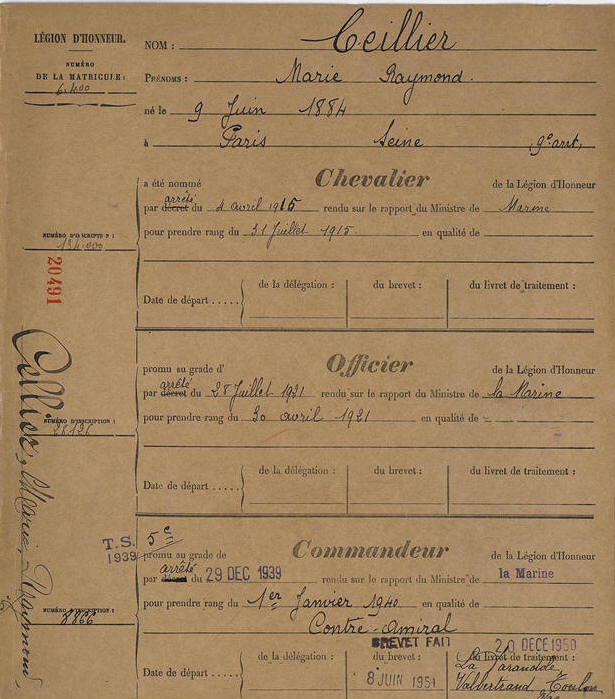 LÉGION D'HONNEUR.
NUMÉRO
DE LA MATRICULE:
6.400
NOM: Ceillier
PRÉNOMS: Marie Raymond.
né le 9 Juin 1884
à Paris Seine 9e arrt,
a été nommé Chevalier de la Légion d'Honneur
par arrêté décret du 4 avril 1915 rendu sur le rapport du Ministre de Marine
pour prendre rang du 31 Juillet 1915. en qualité de
NUMÉRO D'INSCRIPTION:
134.000
20491
de la délégation: du brevet: du livret de traitement:
Date de départ .....
promu au grade d' Officier de la Légion d'Honneur
par arrêté décret du 28 Juillet 1921 rendu sur le rapport du Ministre de la Marine
pour prendre rang du 30 avril 1921 en qualité de
NUMÉRO D'INSCRIPTION:
28126
de la délégation: du brevet: du livret de traitement:
Date de départ .....
T.S. 5e
1939
promu au grade de Commandeur de la Légion d'Honneur
par arrêté décret du 29 DEC 1939 rendu sur le rapport du Ministre de la Marine
pour prendre rang du 1er Janvier 1940 en qualité de
Contre-Amiral
NUMÉRO D'INSCRIPTION:
8866
BREVET FAIT 20 DECE 1950
de la délégation: du livret de traitement:
Date de départ ..... 8 JUIN 1951
Valbertrand Toulon
Var
Ceillier, Marie, Raymond,